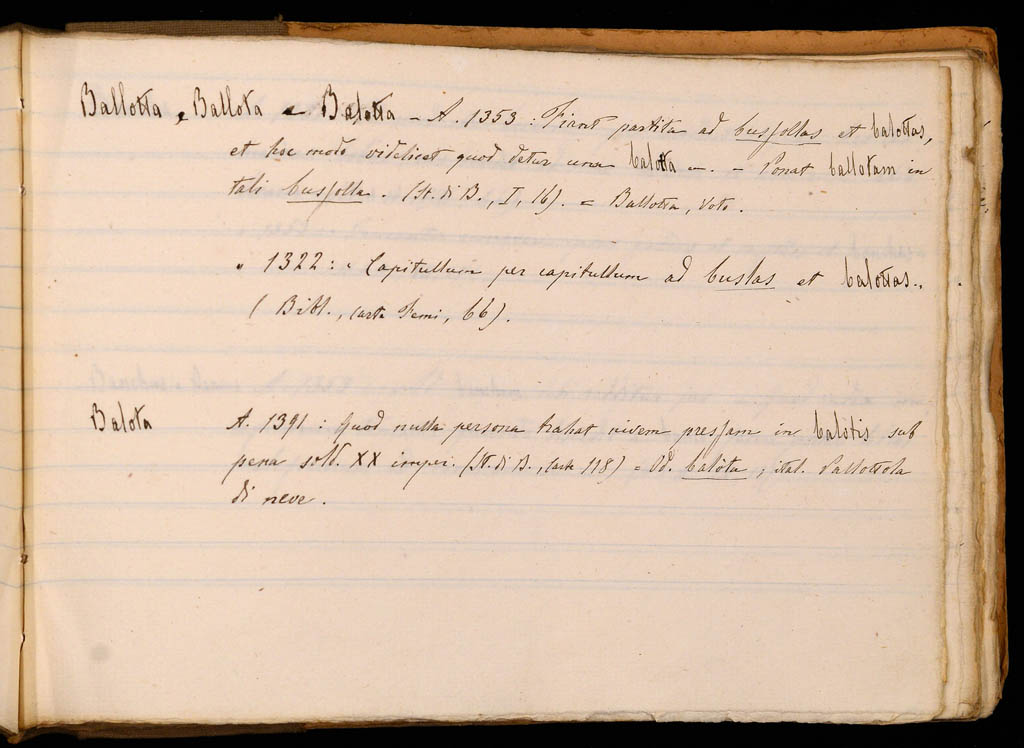 Ballotta, Ballota e Balotta – A. 1353 : Fiant partita ad bussollas et balottas,
et hoc modo videlicet quod detur una balotta –. – Ponat ballotam in
tali bussolla. (St. di B., I, 16). = Ballotta, voto.
" 1322 : – Capitullum per capitullum ad buslas et balottas.,
( Bibl., carte Femi, 66).
Balota A. 1391 : Quod nulla persona trahat nivem pressam in balotis sub
pena sold. XX imper. (St. di B., carte 118) = Od. balòta ; ital. Pallottola
di neve.